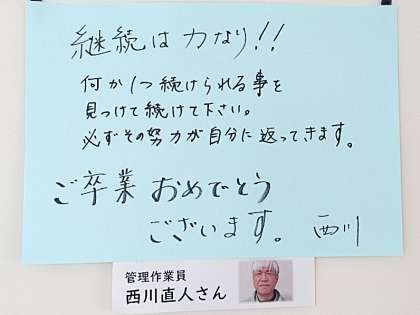 継続は力なり!!
何か1つ続けられる事を
見つけて続けて下さい。
必ずその努力が自分に返ってきます。
ご卒業 おめでとう
ございます。 西川
管理作業員
西川直人さん